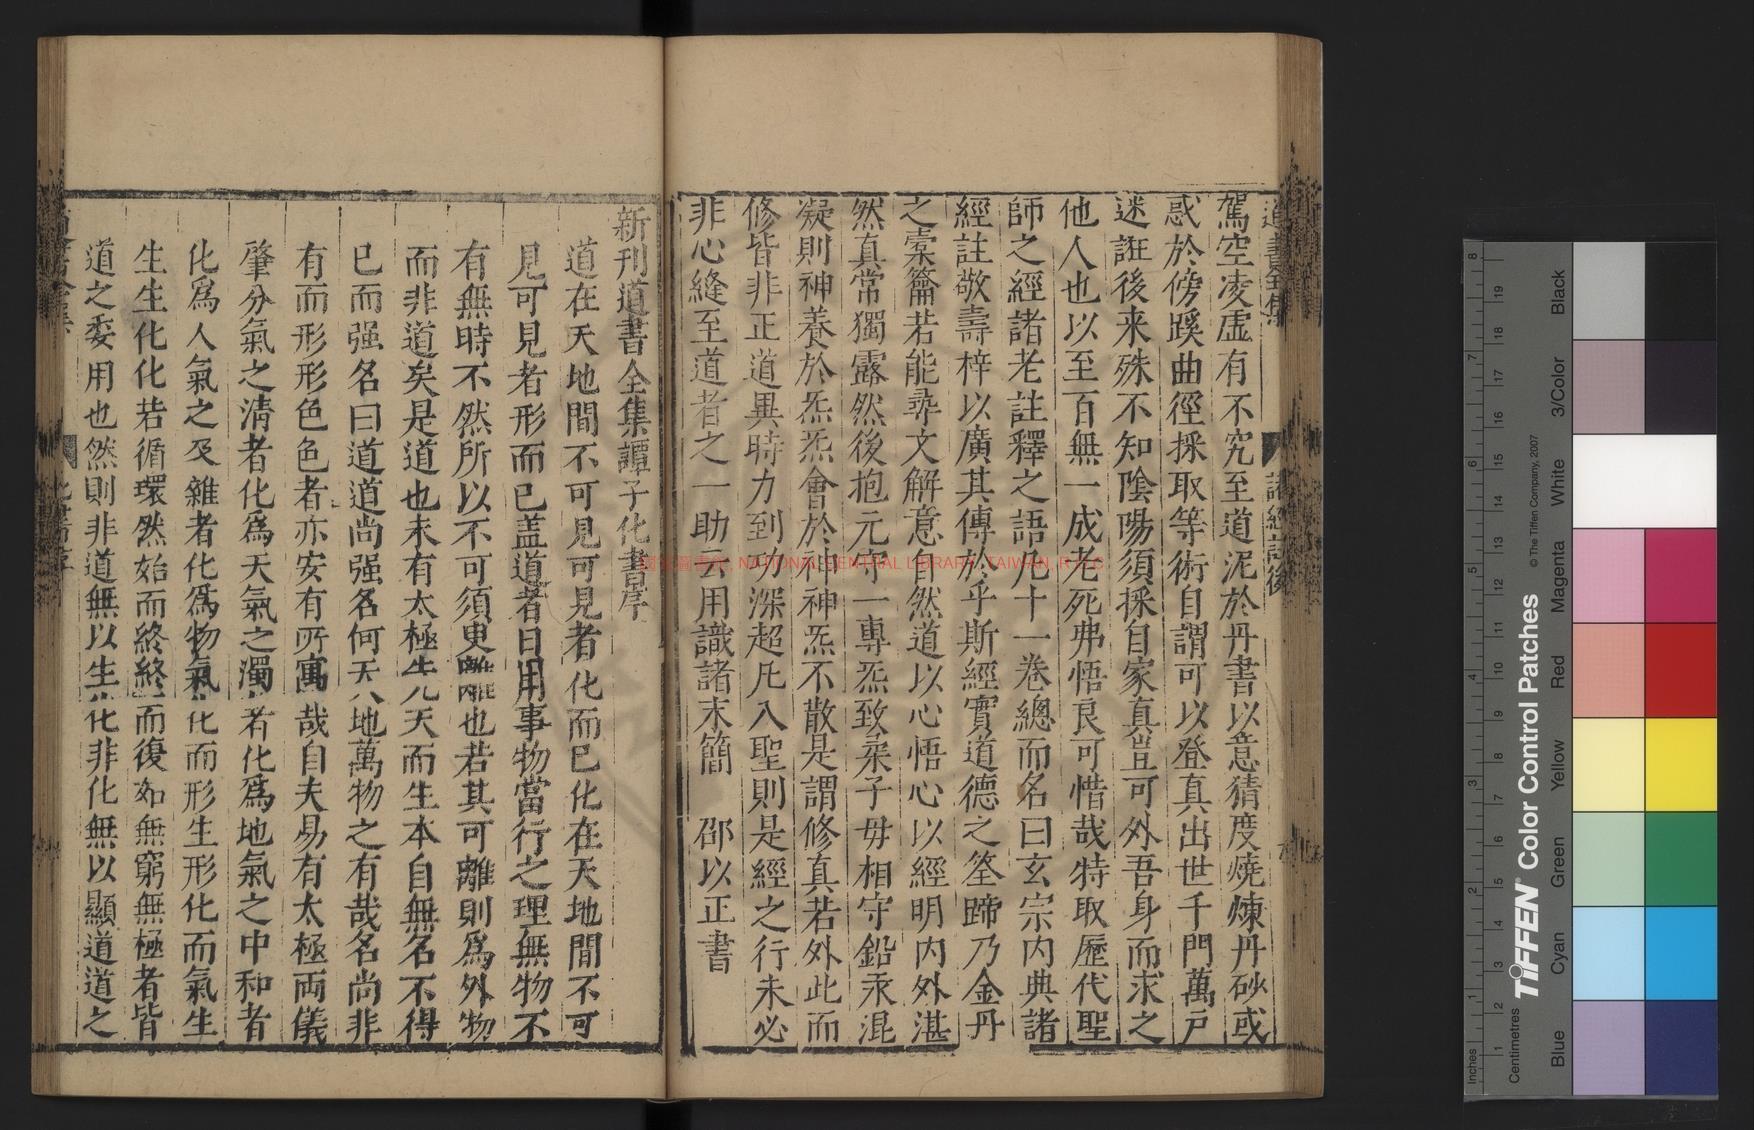 道書全集 諸經註後
駕空凌虛有不究至道泥於丹書以意猜度燒煉丹砂或
惑於傍蹊曲徑採取等術自謂可以登真出世千門萬戶
迷誑後来殊不知陰陽須採自家真豈可外吾身而求之
他人也以至百無一成老死弗悟良可惜哉特取歷代聖
師之經諸老註釋之語凡十一卷總而名曰玄宗内典諸
經註敬壽梓以廣其傳於乎斯經實道德之筌蹄乃金丹
之橐籥若能尋文解意自然道以心悟心以經明内外湛
然真常獨露然後抱元守一專炁致柔子毋相守鉛汞混
凝則神養於炁炁會於神神炁不散是謂修真若外此而
修皆非正道異時力到功深超凡入聖則是經之行未必
非心縫至道者之一助云用識諸末簡 邵以正書
新刊道書全集譚子化書序
道在天地間不可見可見者化而已化在天地間不可
見可見者形而已盖道者日用事物當行之理無物不
有無時不然所以不可須臾離也若其可離則爲外物
而非道矣是道也未有太極生九天而生本自無名不得
已而强名曰道道尚强名何天地萬物之有哉名尚非
有而形形色色者亦安有所寓哉自夫易有太極兩儀
肇分氣之清者化爲天氣之濁者化爲地氣之中和者
化爲人氣之雜者化爲物氣化而形生形化而氣生
生生化化若循環然始而終終而復如無窮無極者皆
道之委用也然則非道無以生化非化無以顯道道之
國家圖書館, NATIONAL CENTRAL LIBRARY, TAIWAN, R.O.C
Inches
Centimetres
TIFFEN Color Control Patches
© The Tiffen Company, 2007
Blue
Cyan
Green
Yellow
Red
Magenta
White
3/Color
Black